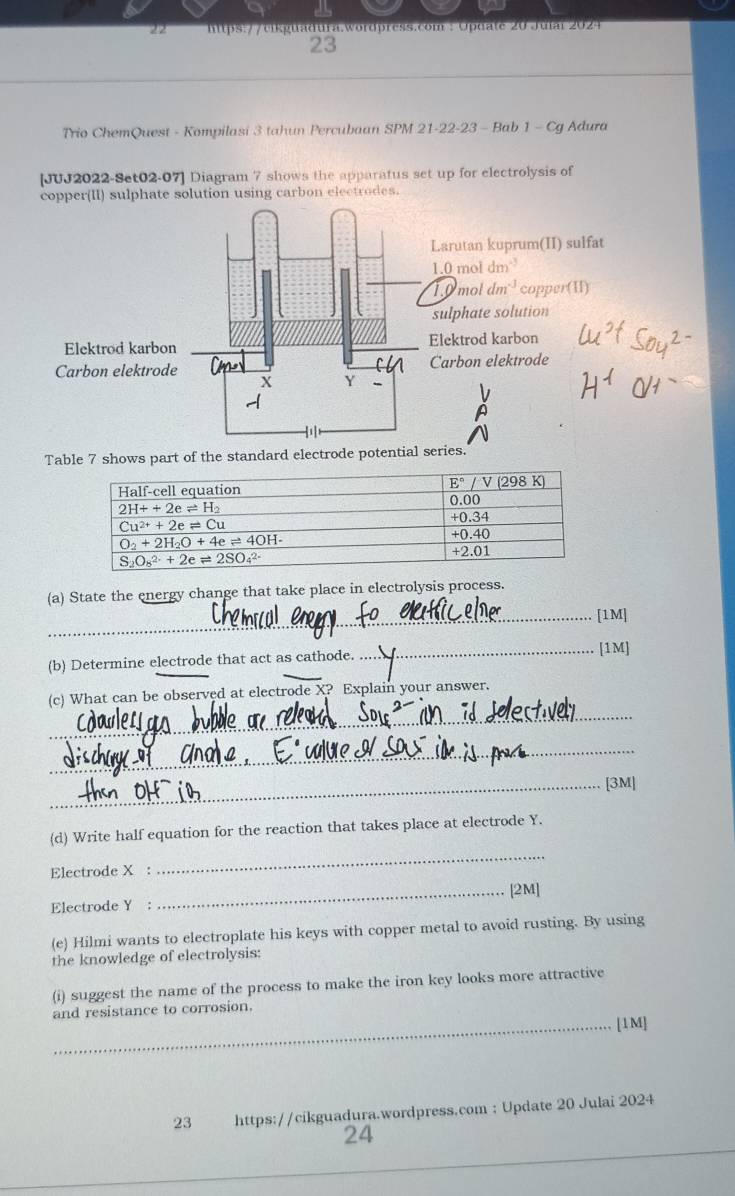 22 https://cikguadura.wordpress.com : Update 20 Julai 2024
23
Trio ChemQuest - Kompilasi 3 tahun Percubaan SPM 21-22-23 - Bab 1 - Cg Adura
[JUJ2022-Set02-07] Diagram 7 shows the apparatus set up for electrolysis of
copper(II) sulphate solution using carbon electrodes.
Larutan kuprum(II) sulfat
1.0 mol dm⁻³
1.0 mol dm⁻³ copper(II)
sulphate solution
Elektrod karbon
Carbon elektrode
Elektrod karbon
Carbon elektrode
X Y
+ -
Cu²⁺ SO₄²⁻
H⁺ OH⁻
V
A
N
Table 7 shows part of the standard electrode potential series.
Half-cell equation E° / V (298 K)
2H+ + 2e ⇌ H₂ 0.00
Cu²⁺ + 2e ⇌ Cu +0.34
O₂ + 2H₂O + 4e ⇌ 4OH- +0.40
S₂O₈²⁻ + 2e ⇌ 2SO₄²⁻ +2.01
(a) State the energy change that take place in electrolysis process.
Chemical energy to [1M]
(b) Determine electrode that act as cathode. Y [1M]
(c) What can be observed at electrode X? Explain your answer.
gas bubble are released ion is selectively
E° value of ion is
then OH⁻ ion [3M]
(d) Write half equation for the reaction that takes place at electrode Y.
Electrode X :
Electrode Y : [2M]
(e) Hilmi wants to electroplate his keys with copper metal to avoid rusting. By using
the knowledge of electrolysis:
(i) suggest the name of the process to make the iron key looks more attractive
and resistance to corrosion.
[1M]
23 https://cikguadura.wordpress.com : Update 20 Julai 2024
24